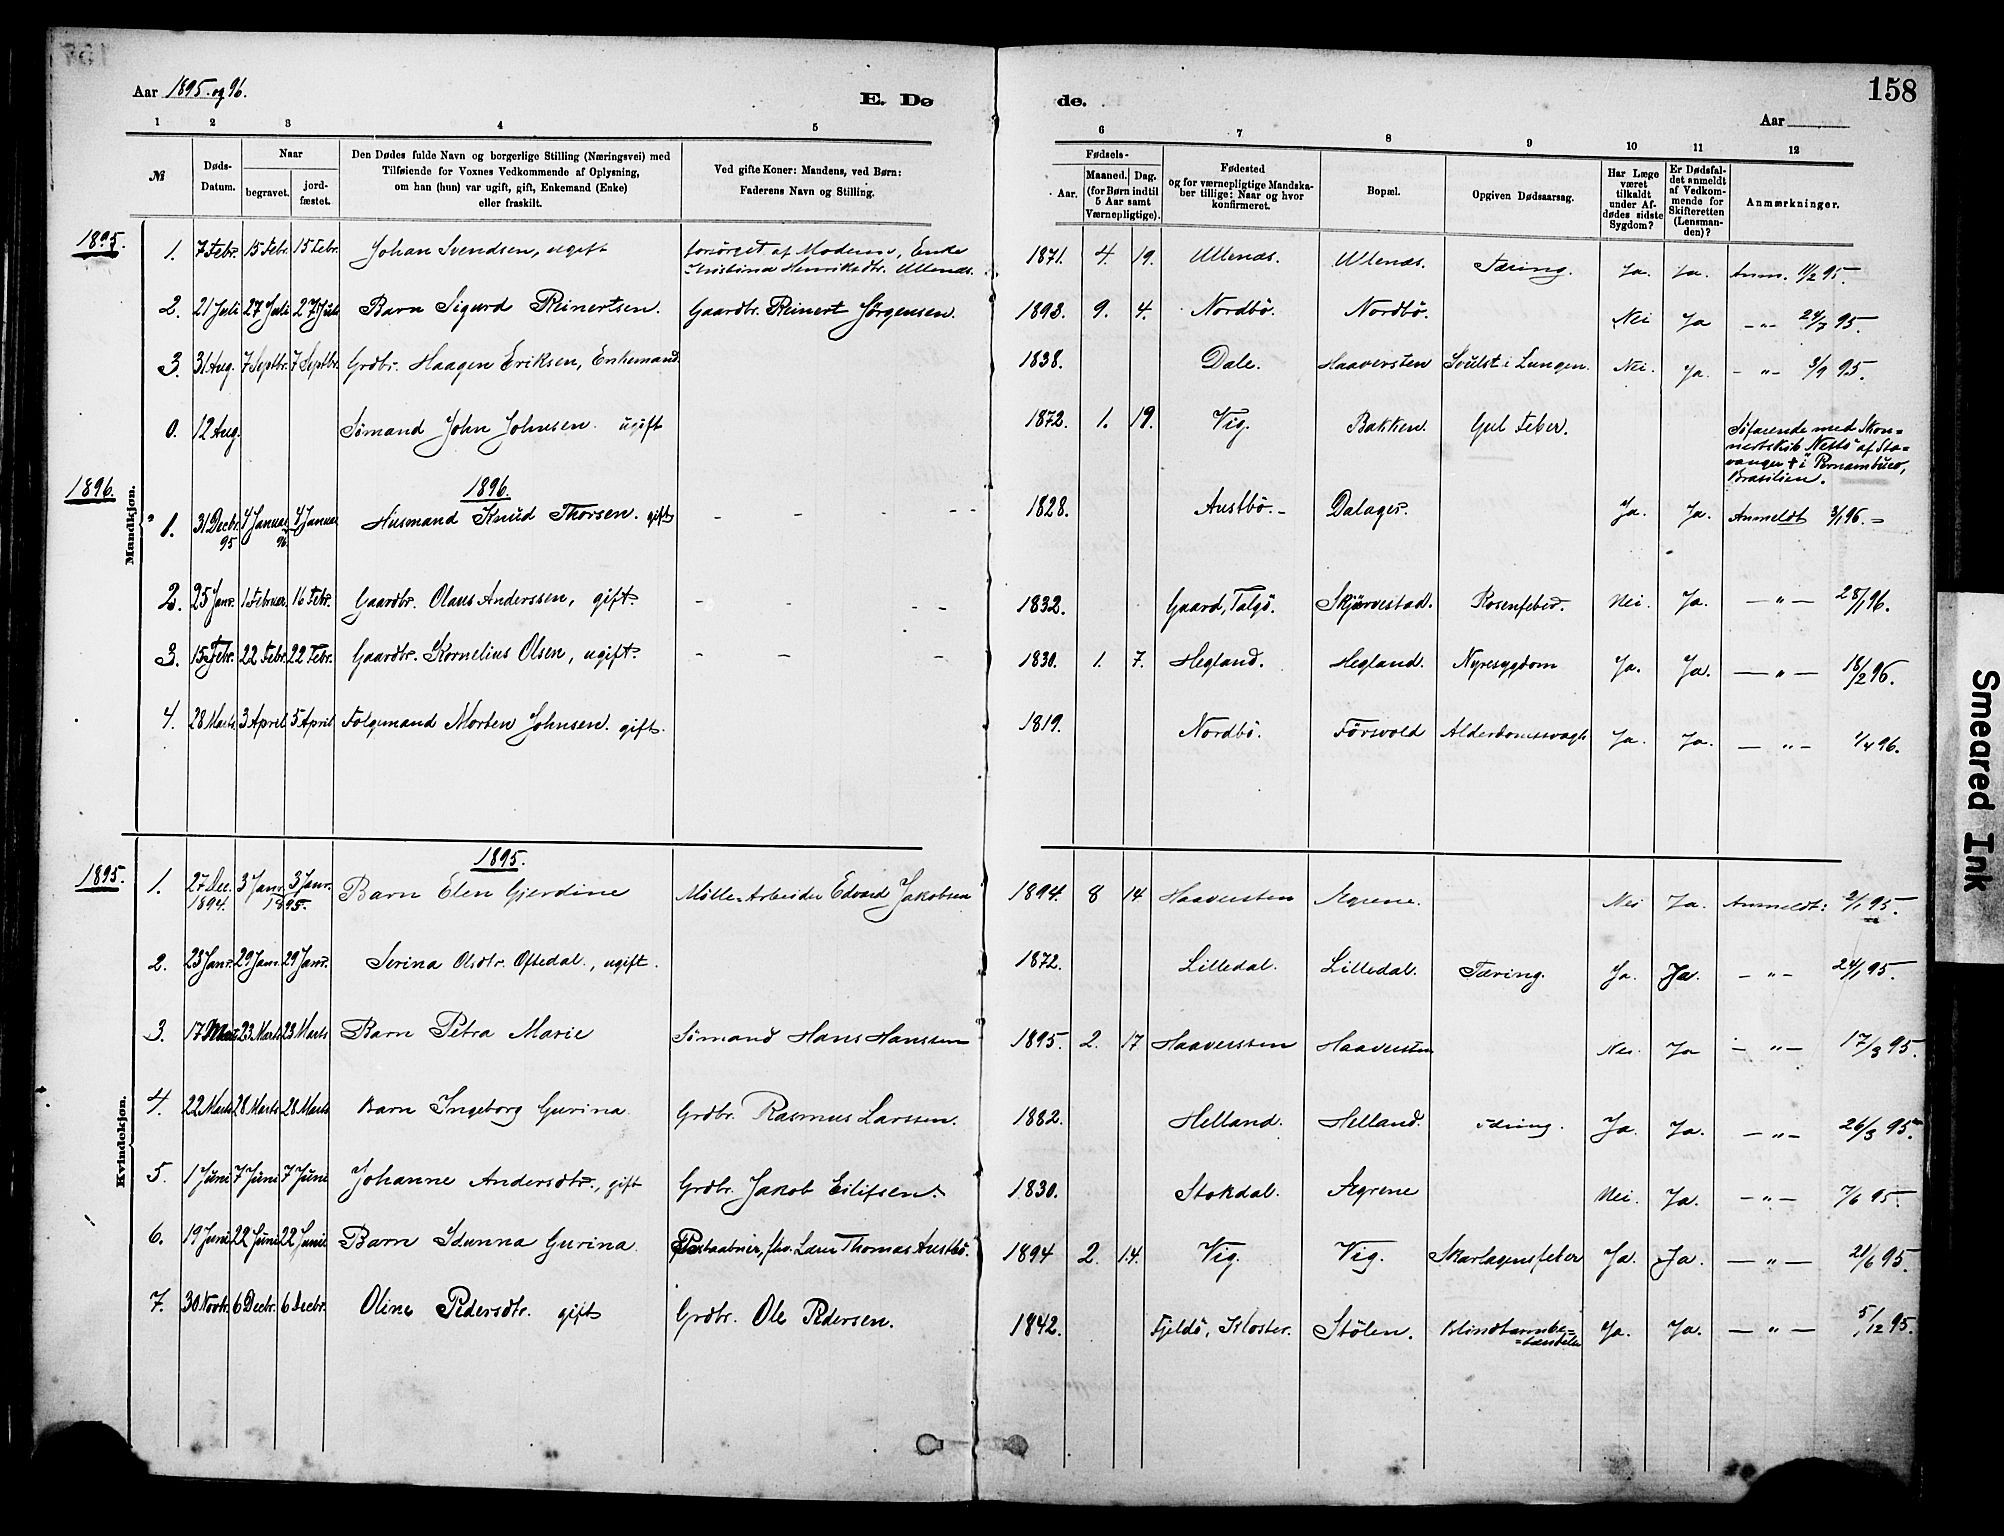 158
Aar 1895 og 96.
E. Døde.
Aar
1 2 3 4 5 6 7 8 9 10 11 12
№
Døds-Datum.
Naar
begravet.
jord-fæstet.
Den Dødes fulde Navn og borgerlige Stilling (Næringsvei) med
Tilføiende for Voxnes Vedkommende af Oplysning,
om han (hun) var ugift, gift, Enkemand (Enke)
eller fraskilt.
Ved gifte Koner: Mandens, ved Børn:
Faderens Navn og Stilling.
Fødsels-
Aar.
Maaned. Dag.
(for Børn indtil
5 Aar samt
Værnepligtige).
Fødested
og for værnepligtige Mandska-
ber tillige: Naar og hvor
konfirmeret.
Bopæl.
Opgiven Dødsaarsag.
Har Læge
været
tilkaldt
under Af-
dødes sidste
Sygdom?
Er Dødsfal-
det anmeldt
af Vedkom-
mende for
Skifteretten
(Lensman-
den)?
Anmærkninger.
Mandkjøn.
1895.
1. 7 Febr. 15 Febr. 15 Febr. Johan Svendsen, ugift forsørget af Moderen, Enke Kristina Henriksdtr. Ullenæs. 1871. 4. 19. Ullenæs. Ullenæs. Tæring. Ja. Ja. Anm. 11/2 95.
2. 21 Juli 27 Juli 27 Juli Barn Sigurd Reinertsen. Gaardbr. Reinert Jørgensen. 1893. 9. 4. Nordbø. Nordbø. Nei Ja — " — 24/7 95.
3. 31 Aug. 7 Septbr. 7 Septbr. Grdbr. Haagen Eriksen, Enkemand. 1838. Dale. Haaversten Svulst i Lungen. Nei. Ja. — " — 3/9 95.
0. 12 Aug. Sømand John Johnsen. ugift 1872. 1. 19. Vig. Bakken. Gul Feber. Søfarende med Skon-
nertskib "Nebo" af Sta-
vanger † i Pernambuco,
Brasilien.
1896.
1896.
1. 31 Decbr. 95 4 Januar 96 4 Januar Husmand Knud Thorsen. gift 1828. Austbø. Dalager. Ja. Ja. Anmeldt 3/1 96.
2. 25 Janr. 1 Februar. 16 Febr. Gaardbr. Olaus Anderssen, gift. 1832. Gaard, Talgø. Skjørvestad. Rosenfeber. Nei. Ja. — " — 28/1 96.
3. 15 Febr. 22 Febr. 22 Febr. Gaardbr. Kornelius Olsen, ugift. 1830. 1. 7. Hegland. Hegland. Nyresygdom Ja. Ja. — " — 18/2 96.
4. 28 Marts 3 April 5 April Folgemand Morten Johnsen. gift. 1819. Nordbø. Førsvold Alderdomssvagh. Ja. Ja. — " — 1/4 96.
Kvindekjøn.
1895.
1895.
1. 27 Dec. 1894. 3 Janr. 3 Janr. 1895. Barn Elen Gjerdine Mølle-Arbeider Edvard Jakobsen 1894. 8 14 Haaversten Ægrene. Nei Ja. Anmeldt: 2/1 95.
2. 23 Janr. 29 Janr. 29 Janr. Serina Olsdtr. Oftedal., ugift. 1872. Lilledal. Lilledal. Tæring. Ja. Ja. — " — 24/1 95.
3. 17 Marts 23 Marts 23 Marts Barn Petra Marie Sømand Hans Hanssen 1895. 2. 17 Haaversten Haaversten Nei. Ja — " — 17/3 95.
4. 22 Marts 28 Marts 28 Marts Barn Ingeborg Gurina. Grdbr. Rasmus Larssen. 1882. Helland. Helland. Tæring. Ja. Ja. — " — 26/3 95.
5. 1 Juni 7 Juni 7 Juni Johanne Andersdtr., gift Grdbr. Jakob Eilifsen. 1830. Stokdal. Ægrene Nei. Ja. — " — 7/6 95.
6. 19 Juni 22 Juni 22 Juni Barn Idunna Gurina. Postaabner, fhv. Lærer Thomas Austbø. 1894 2. 14. Vig. Vig. Skarlagensfeber Ja. Ja. — " — 21/6 95.
7. 30 Novbr. 6 Decbr. 6 Decbr. Oline Pedersdtr. gift Grdbr. Ole Pedersen. 1842. Fjeldø, Kloster. Stølen. Blindtarmbe-
tændelse Ja. Ja. — " — 5/12 95.
Smeared Ink